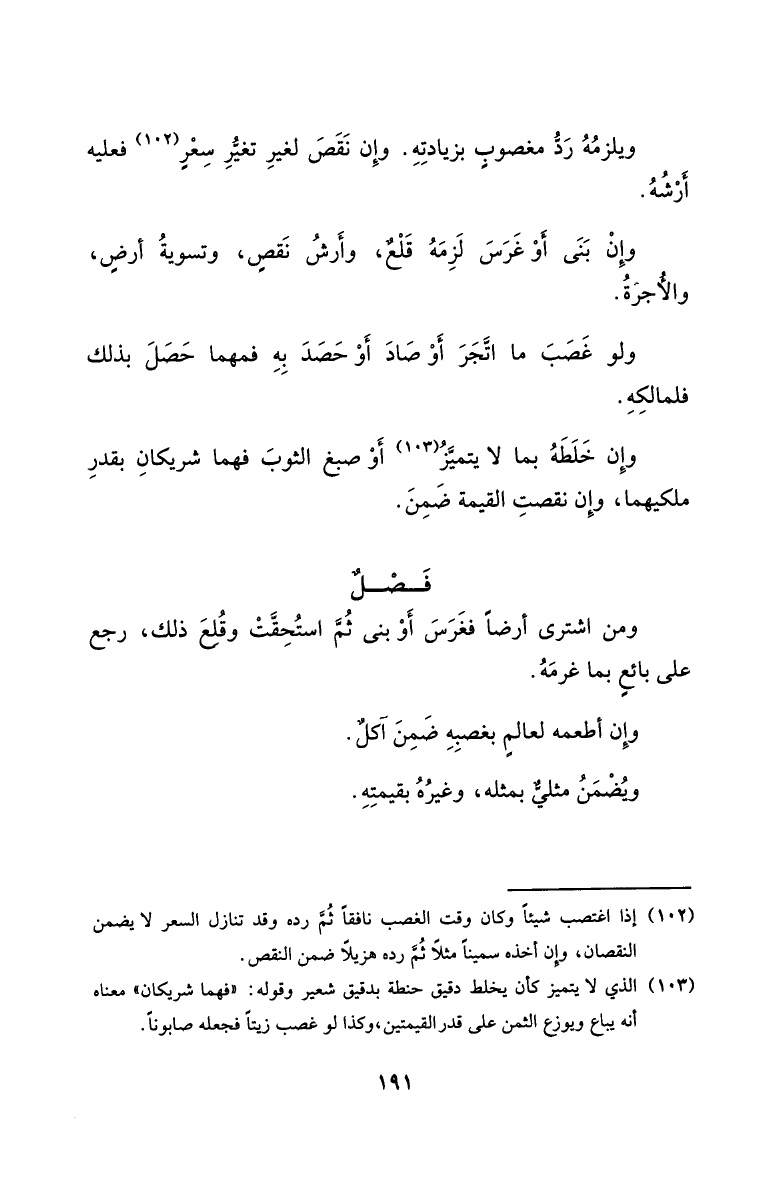 ويلزمُهُ رَدُّ مغصوبٍ بزيادتِهِ. وإن نَقَصَ لغيرِ تغيُّرِ سِعْرٍ(١٠٢) فعليه
أَرْشُهُ.
وإنْ بَنَى أَوْ غَرَسَ لَزِمَهُ قَلْعٌ، وأَرشُ نَقصٍ، وتسويةُ أرضٍ،
والأُجرَةُ.
ولو غَصَبَ ما اتَّجَرَ أَوْ صَادَ أَوْ حَصَدَ بِهِ فمهما حَصَلَ بذلك
فلمالكِهِ.
وإن خَلَطَهُ بما لا يتميَّزُ(١٠٣) أَوْ صبغ الثوبَ فهما شريكانِ بقدرِ
ملكيهما، وإن نقصتِ القيمة ضَمِنَ.
فَـصْـلٌ
ومن اشترى أرضاً فغَرَسَ أَوْ بنى ثُمَّ استُحِقَّتْ وقُلِعَ ذلك، رجع
على بائعٍ بما غرمَهُ.
وإن أطعمه لعالمٍ بغصبِهِ ضَمِنَ آكلٌ.
ويُضْمَنُ مثليٌّ بمثله، وغيرُهُ بقيمتِهِ.
(١٠٢) إذا اغتصب شيئاً وكان وقت الغصب نافقاً ثُمَّ رده وقد تنازل السعر لا يضمن
النقصان، وإن أخذه سميناً مثلاً ثُمَّ رده هزيلاً ضمن النقص.
(١٠٣) الذي لا يتميز كأن يخلط دقيق حنطة بدقيق شعير وقوله: «فهما شريكان» معناه
أنه يباع ويوزع الثمن على قدر القيمتين، وكذا لو غصب زيتاً فجعله صابوناً.
١٩١